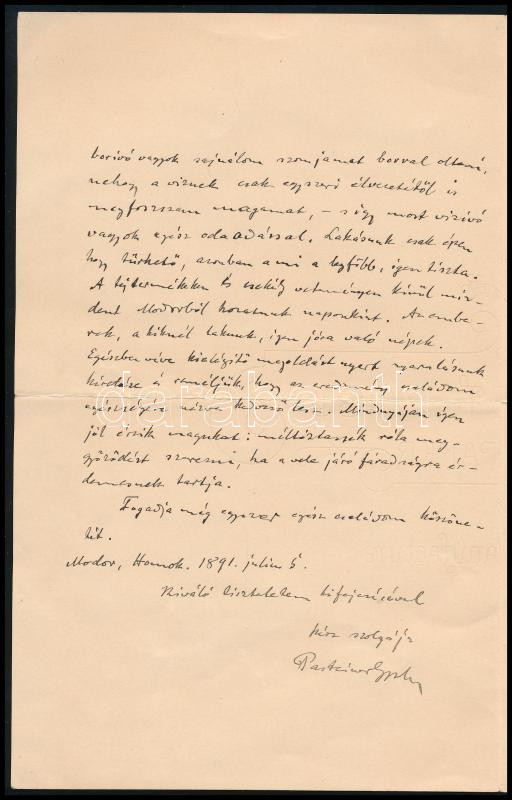 borivó vagyok sajnálom szomjamat borral oltani,
nehogy a viznek csak egyszeri élvezetétől is
megfosszam magamat, – s igy most vizivó
vagyok egész odaadással. Lakásunk csak épen
hogy türhető, azonban a mi a legfőbb, igen tiszta.
A tejtermékeken és csekély veteményen kivül min-
dent Modorból hozatunk naponkint. Az embe-
rek, a kiknél lakunk, igen jóra való népek.
Egészben véve kielégitő megoldást nyert nyaralásunk
kérdése és reméljük, hogy az eredmény családom
egészségére nézve kedvező lesz. Mindnyájan igen
jól érzik magukat: méltóztassék róla meg-
győződést szerezni, ha a vele járó fáradságra ér-
demesnek tartja.
Fogadja még egyszer egész családom köszöne-
tét.
Modor, Homok. 1891. julius 5.
Kiváló tisztelettem kifejezésével
kész szolgája
Pasteiner Gyula
darabanth